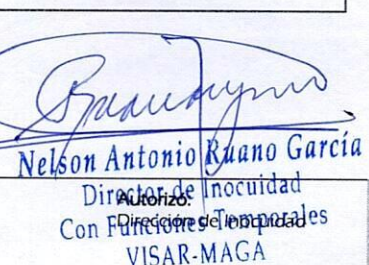 Nelson Antonio Ruano García
Director de Inocuidad
Autorizó:
Con Funciones Temporales
Dirección de Inocuidad
VISAR-MAGA